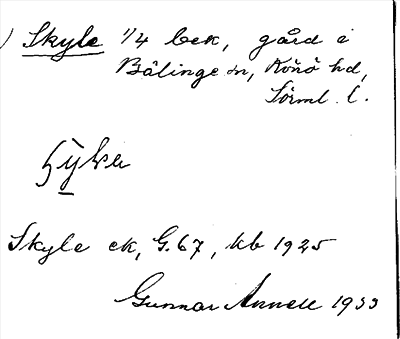 ) Skyle 1/4 bek, gård i
Bälinge sn, Rönö hd,
Sörml. l.
Skyle ek, G.67, kb 1925
Gunnar Annell 1933